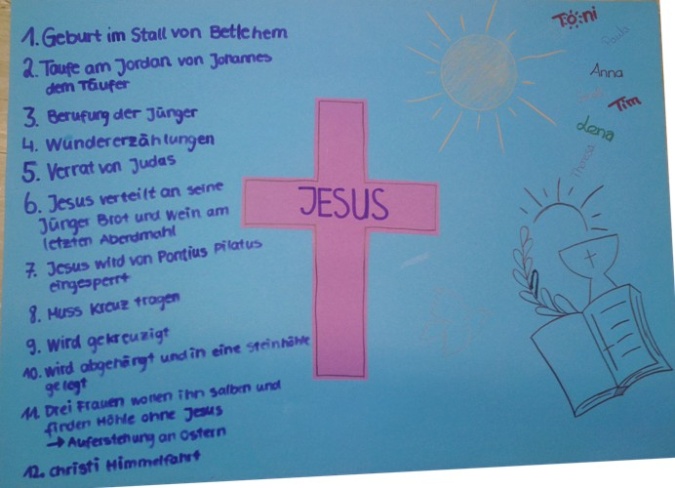 1. Geburt im Stall von Betlehem
2. Taufe am Jordan von Johannes
dem Täufer
3. Berufung der Jünger
4. Wundererzählungen
5. Verrat von Judas
6. Jesus verteilt an seine
Jünger Brot und Wein am
letzten Abendmahl
7. Jesus wird von Pontius Pilatus
eingesperrt
8. Muss Kreuz tragen
9. Wird gekreuzigt
10. wird abgehängt und in eine Steinhöhle
gelegt
11. Drei Frauen wollen ihn salben und
finden Höhle ohne Jesus
→ Auferstehung an Ostern
12. Christi Himmelfahrt
JESUS
Toni
Paula
Anna
Tim
Lena